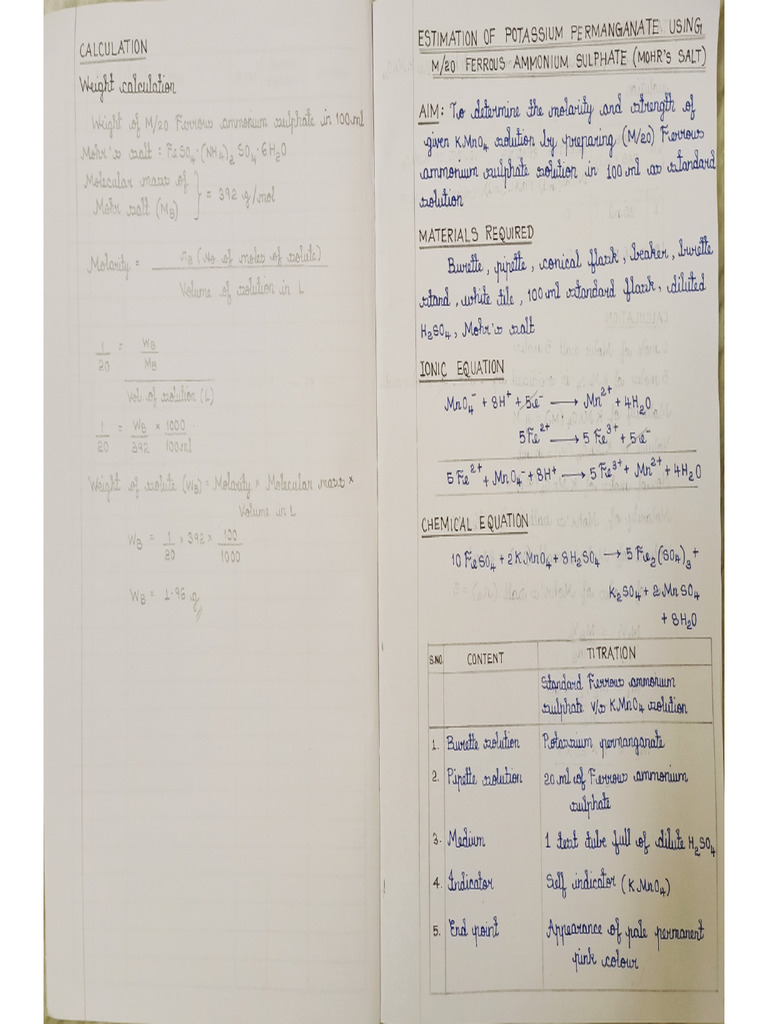 CALCULATION
Weight calculation
Weight of M/20 Ferrous ammonium sulphate in 100ml
Mohr's salt : FeSO₄·(NH₄)₂SO₄·6H₂O
Molecular mass of
Mohr salt (M_B) } = 392 g/mol
Molarity = n_B (No of moles of solute)
Volume of solution in L
1/20 = W_B/M_B
Vol of solution (L)
1/20 = W_B/392 × 1000/100ml
Weight of solute (W_B) = Molarity × Molecular mass ×
Volume in L
W_B = 1/20 × 392 × 100/1000
W_B = 1.96 g
ESTIMATION OF POTASSIUM PERMANGANATE USING
M/20 FERROUS AMMONIUM SULPHATE (MOHR'S SALT)
AIM: To determine the molarity and strength of
given KMnO₄ solution by preparing (M/20) Ferrous
ammonium sulphate solution in 100 ml as standard
solution
MATERIALS REQUIRED
Burette, pipette, conical flask, beaker, burette
stand, white tile, 100 ml standard flask, diluted
H₂SO₄, Mohr's salt
IONIC EQUATION
MnO₄⁻ + 8H⁺ + 5e⁻ ⟶ Mn²⁺ + 4H₂O
5Fe²⁺ ⟶ 5Fe³⁺ + 5e⁻
5Fe²⁺ + MnO₄⁻ + 8H⁺ ⟶ 5Fe³⁺ + Mn²⁺ + 4H₂O
CHEMICAL EQUATION
10FeSO₄ + 2KMnO₄ + 8H₂SO₄ ⟶ 5Fe₂(SO₄)₃ +
K₂SO₄ + 2MnSO₄
+ 8H₂O
S.NO. CONTENT TITRATION
Standard Ferrous ammonium
sulphate v/s KMnO₄ solution
1. Burette solution Potassium permanganate
2. Pipette solution 20 ml of Ferrous ammonium
sulphate
3. Medium 1 test tube full of dilute H₂SO₄
4. Indicator Self indicator (KMnO₄)
5. End point Appearance of pale permanent
pink colour